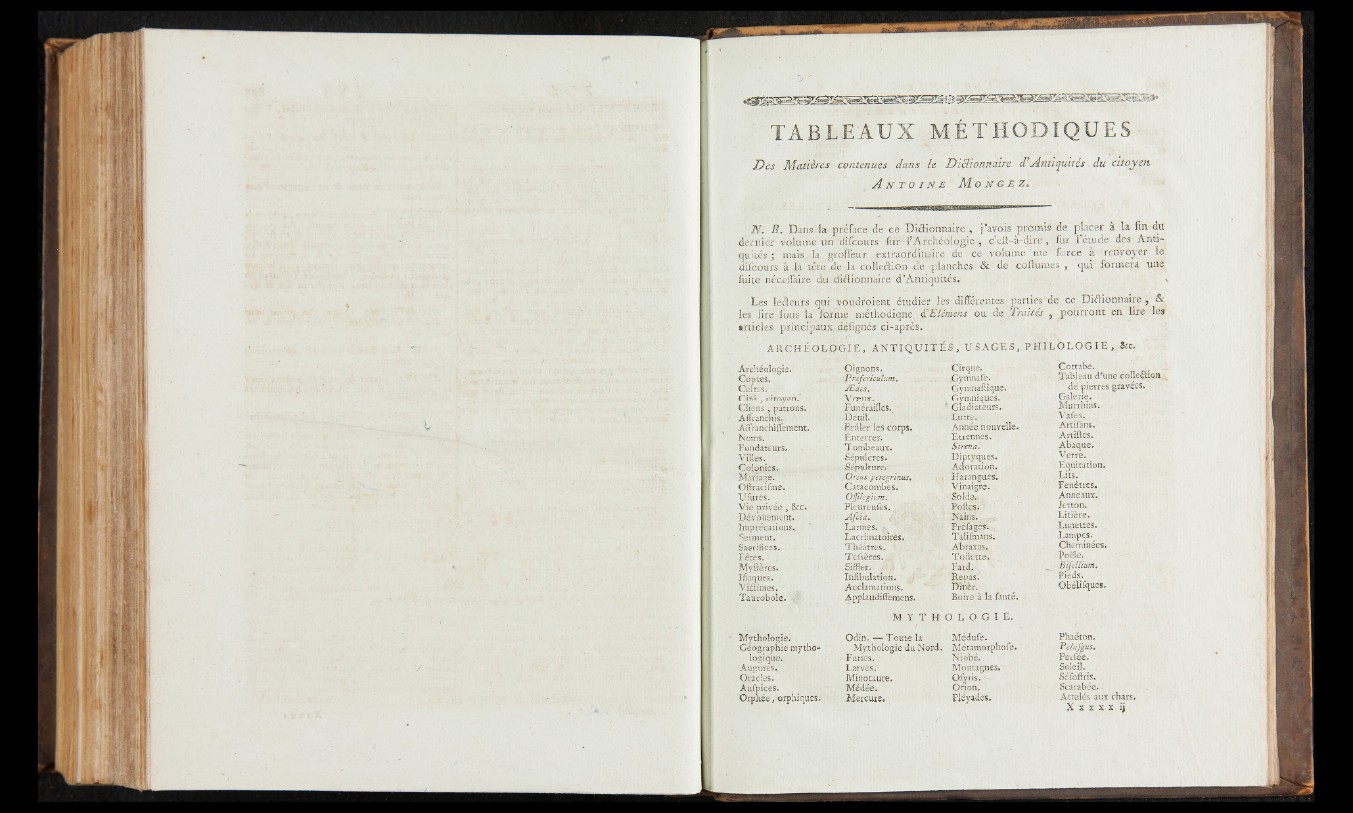 TABLEAUX MÉTHODIQUES
Des Matières contenues dans le Dictionnaire d'Antiquités du citoyen
ANTOINE MONGEZ.
N. B. Dans la préface de ce Dictionnaire, j'avois promis de placer à la fin du
dernier volume un difcours fur l'Archéologie, c'eft-à-dire, fur l'étude des Anti-
quités; mais la groffeur extraordinaire de ce volume me force à renvoyer le
difcours à la tête de la collection de planches & de coftumes, qui formera une
fuite néceffaire du dictionnaire d'Antiquités.
Les lecteurs qui voudroient étudier les différentes parties de ce Dictionnaire, &
les lire fous la forme méthodique d'Elémens ou de Traités, pourront en lire les
articles principaux défignés ci-après.
ARCHÉOLOGIE, ANTIQUITÉS, USAGES, PHILOLOGIE, &c.
Archéologie.
Coptes.
Cultes.
Cité, citoyen.
Cliens, patrons.
Affranchis.
Affranchiffement.
Noms.
Fondateurs.
Villes.
Colonies.
Mariage.
Oftracifme.
Ufures.
Vie privée, &c.
Dévouement.
Imprécations.
Serment.
Sacrifices.
Fêtes.
Myftères.
Ifiaques.
Victimes.
Taurobole.
Oignons.
Præfericulum.
Ædes.
Vœux.
Funérailles.
Deuil.
Brûler les corps.
Enterrer.
Tombeaux.
Sépulcres.
Sépulture.
Orcus peregrinus.
Catacombes.
Offilegium.
Pleureufes.
Afcia.
Larmes.
Lacrimatoires.
Théâtres.
Tefsères.
Siffler.
Infibulation.
Acclamations.
Applaudiffemens.
Cirque.
Gymnafe.
Gymnaftique.
Gymniques.
Gladiateurs.
Lutte.
Année nouvelle.
Etrennes.
Strena.
Diptyques.
Adoration.
Harangues.
Vinaigre.
Solde.
Poftes.
Nains.
Préfages.
Talifmans.
Abraxas.
Toilette.
Fard.
Repas.
Dîner.
Boire à la fanté.
Cottabe.
Tableau d'une collection
de pierres gravées.
Galerie.
Murrhins.
Vafes.
Artifans.
Artiftes.
Abaque.
Verre.
Equitation.
Lits.
Fenêtres.
Anneaux.
Jetton.
Litière.
Lunettes.
Lampes.
Cheminées.
Poêle.
Bifellium.
Pieds.
Obélifques.
MYTHOLOGIE.
Mythologie.
Géographie mytho-
logique.
Augures.
Oracles.
Aufpices.
Orphée, orphiques.
Odin. — Toute la
Mythologie du Nord.
Furies.
Larves.
Minotaure.
Médée.
Mercure.
Médufe.
Métamorphofe.
Niobé.
Montagnes.
Ofyris.
Orion.
Pléyades.
Phaéton.
Pelafgus.
Perfée.
Soleil.
Séfoftris.
Scarabée.
Attelés aux chars.
X x x x x ij